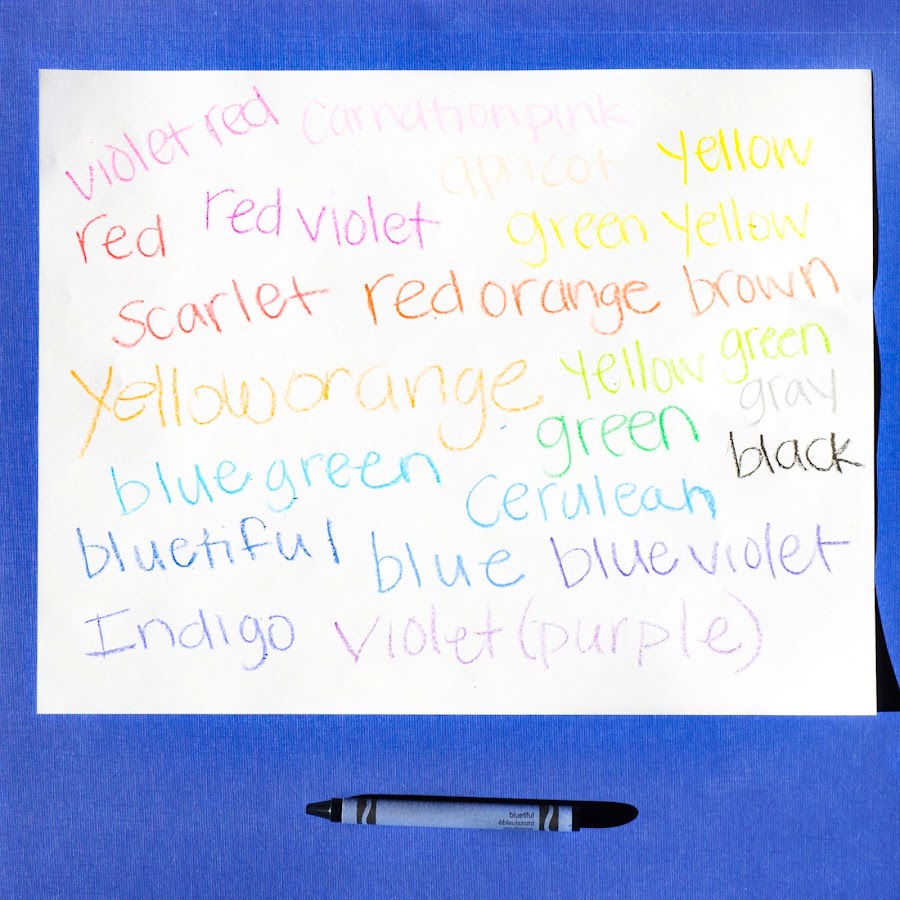 violet red carnation pink
apricot yellow
red red violet green yellow
scarlet red orange brown
yellow orange yellow green
gray
green
black
blue green cerulean
bluetiful blue blue violet
Indigo violet (purple)
bluetiful
éblouissant